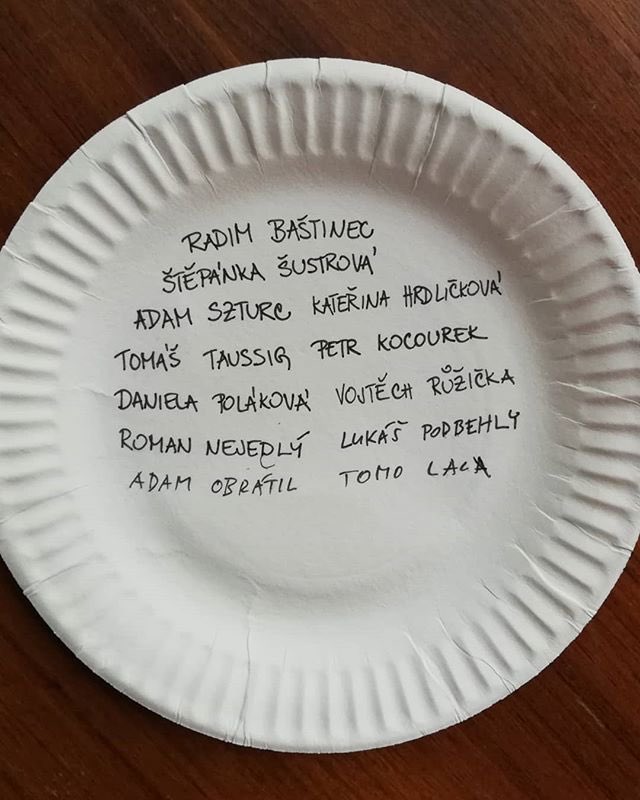 RADIM BAŠTINEC
ŠTĚPÁNKA ŠUSTROVÁ
ADAM SZTURC KATEŘINA HRDLIČKOVÁ
TOMÁŠ TAUSSIG PETR KOCOUREK
DANIELA POLÁKOVÁ VOJTĚCH RŮŽIČKA
ROMAN NEJEDLÝ LUKÁŠ PODBEHLÝ
ADAM OBRÁTIL TOMO LACA